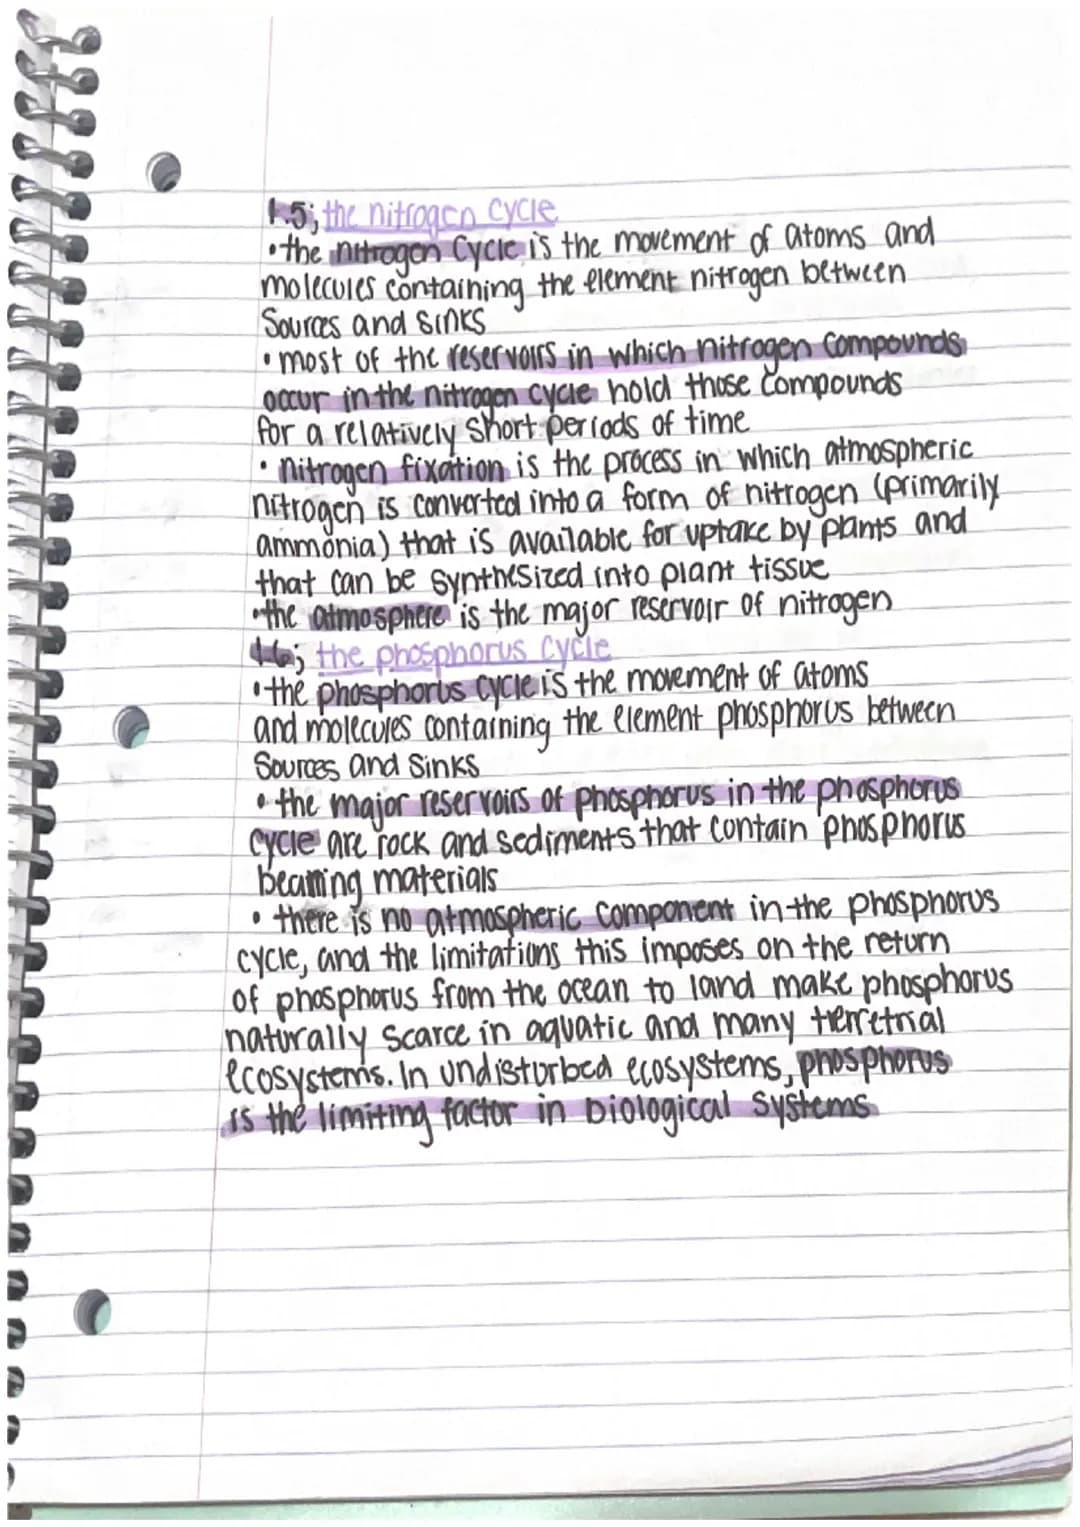 1.5; the nitrogen cycle
•the nitrogen Cycle is the movement of atoms and
molecules containing the element nitrogen between
Sources and sinks
• most of the reservoirs in which nitrogen compounds
occur in the nitrogen cycle hold those compounds
for a relatively short periods of time
• nitrogen fixation is the process in which atmospheric
nitrogen is converted into a form of nitrogen (primarily
ammonia) that is available for uptake by plants and
that can be synthesized into plant tissue
•the atmosphere is the major reservoir of nitrogen
1.6; the phosphorus cycle
•the phosphorus cycle is the movement of atoms
and molecules containing the element phosphorus between
Sources and Sinks
• the major reservoirs of phosphorus in the phosphorus
cycle are rock and sediments that contain phosphorus
bearing materials
• there is no atmospheric component in the phosphorus
cycle, and the limitations this imposes on the return
of phosphorus from the ocean to land make phosphorus
naturally scarce in aquatic and many terretrial
ecosystems. In undisturbed ecosystems, phosphorus
is the limiting factor in biological systems